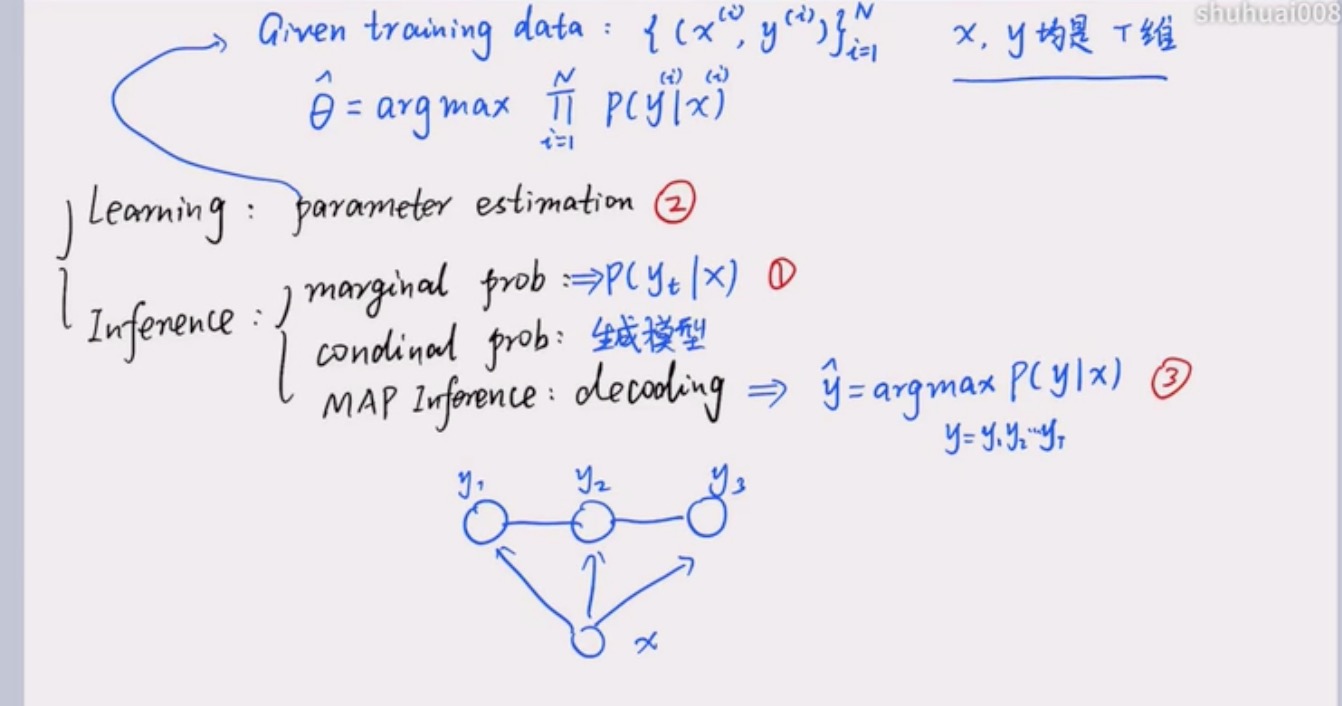 shuhuai008
Given training data : {(x^(i), y^(i))}_{i=1}^N x, y 均是 T维
θ̂ = argmax ∏_{i=1}^N P(y^(i)|x^(i))
Learning : parameter estimation ②
Inference : marginal prob : ⇒ P(y_t|x) ①
condinal prob : 生成模型
MAP Inference : decoding ⇒ ŷ = argmax P(y|x) ③
y = y₁y₂…y_T
y₁ y₂ y₃
x